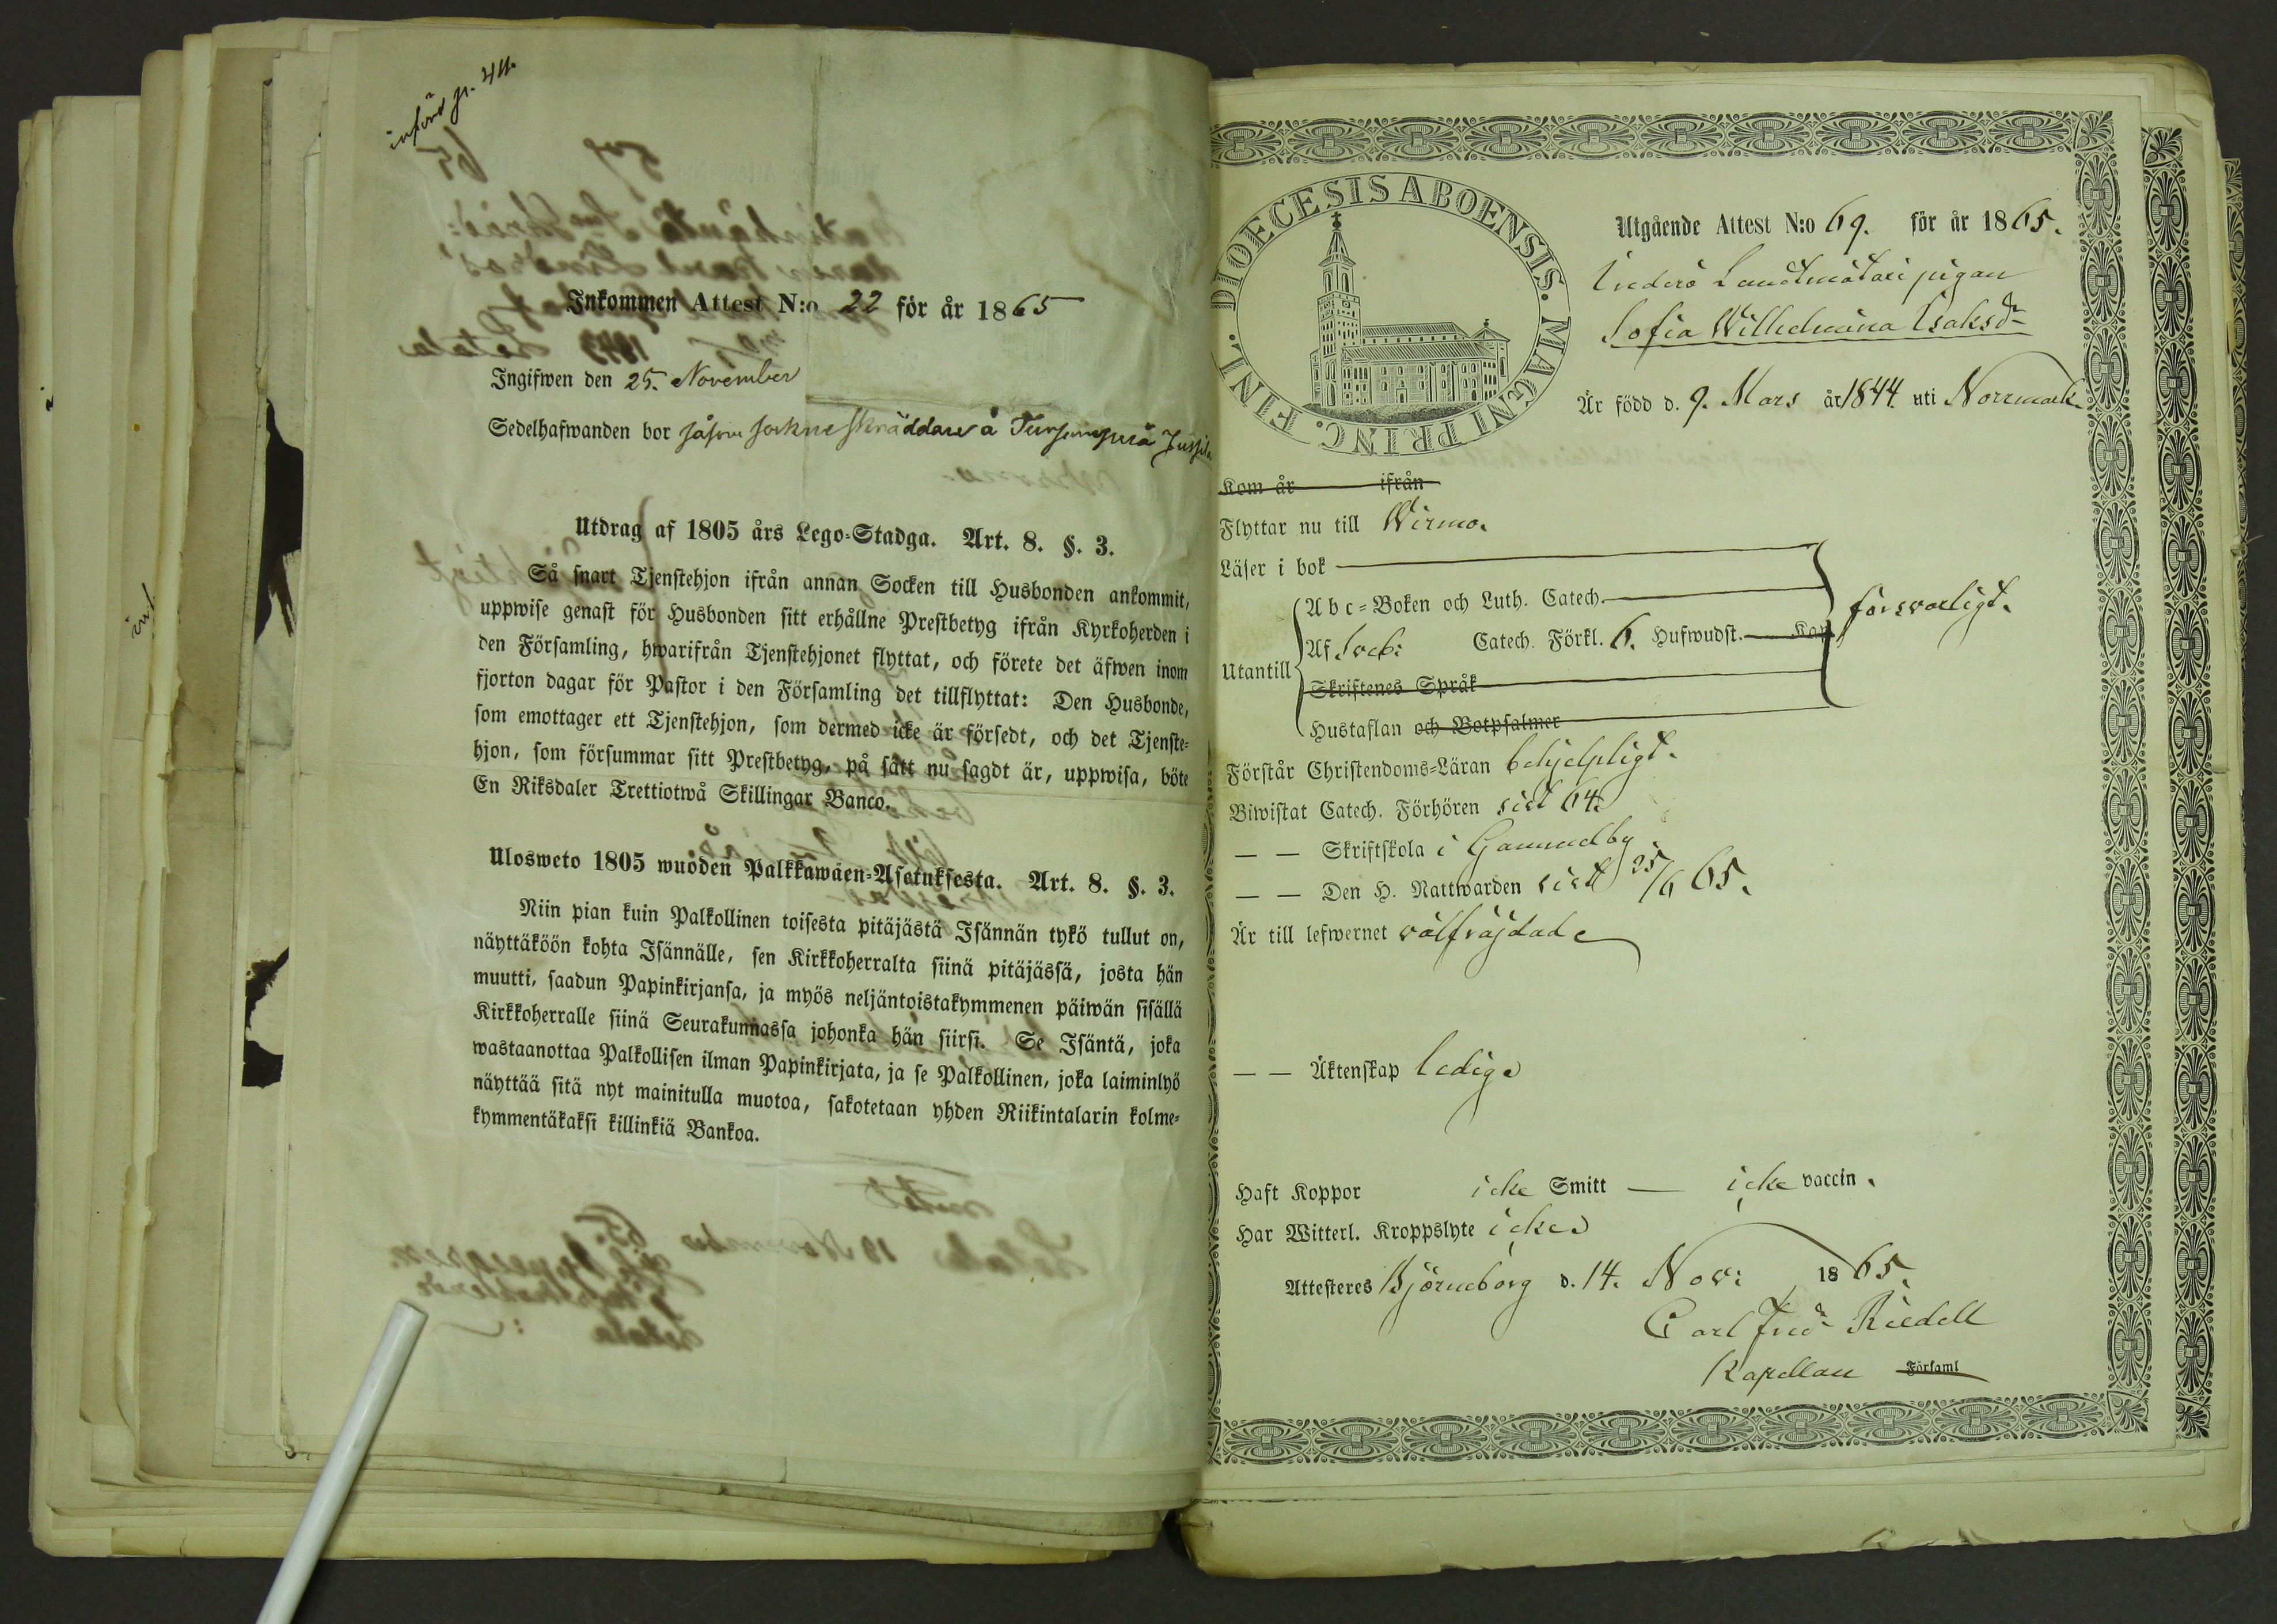 införd p. 411.
Inkommen Attest N:o 22 för år 1865
Ingifwen den 25. November
Sedelhafwanden bor såsom sockneskräddare å
Utdrag af 1805 års Lego-Stadga. Art. 8. §. 3.
Så snart Tjenstehjon ifrån annan Socken till Husbonden ankommit,
uppwise genast för Husbonden sitt erhållne Prestbetyg ifrån Kyrkoherden i
den Församling, hwarifrån Tjenstehjonet flyttat, och förete det äfwen inom
fjorton dagar för Pastor i den Församling det tillflyttat: Den Husbonde,
som emottager ett Tjenstehjon, som dermed icke är försedt, och det Tjenste-
hjon, som försummar sitt Prestbetyg, på sätt nu sagdt är, uppwisa, böte
En Riksdaler Trettiotwå Skillingar Banco.
Ulosweto 1805 wuoden Palkkawäen-Asetuksesta. Art. 8. §. 3.
Niin pian kuin Palkollinen toisesta pitäjästä Isännän tykö tullut on,
näyttäköön kohta Isännälle, sen Kirkkoherralta siinä pitäjässä, josta hän
muutti, saadun Papinkirjansa, ja myös neljäntoistakymmenen päiwän sisällä
Kirkkoherralle siinä Seurakunnassa johonka hän siirsi. Se Isäntä, joka
wastaanottaa Palkollisen ilman Papinkirjata, ja se Palkollinen, joka laiminlyö
näyttää sitä nyt mainitulla muotoa, sakotetaan yhden Riikintalarin kolme-
kymmentäkaksi killinkiä Bankoa.
DIOECESIS ABOENSIS. MAGNI PRINC. FINL.
Utgående Attest N:o 69. för år 1865.
Landtmätari pigan
Sofia Willhelmina Isaksdr
Är född d. 9. Mars år 1844. uti Norrmark
Kom år ifrån
Flyttar nu till Wirmo.
Läser i bok
Abc-Boken och Luth. Catech.
försvarligt.
Utantill
Af Sveb: Catech. Förkl. 6. Hufwudst. Kap.
Skriftenes Språk
Hustaflan och Botpsalmer
Förstår Christendoms-Läran behjelpligt.
Biwistat Catech. Förhören sist 64.
— — Skriftskola i Gammelby
— — Den H. Nattwarden sist 25/6 65.
Är till lefwernet välfräjdade
— — Äktenskap ledige
Haft Koppor icke Smitt — icke vaccin.
Har Witterl. Kroppslyte icke
Attesteres Björneborg d. 14. Nov: 1865.
Carl Fredr Riedell
Kapellan Församl